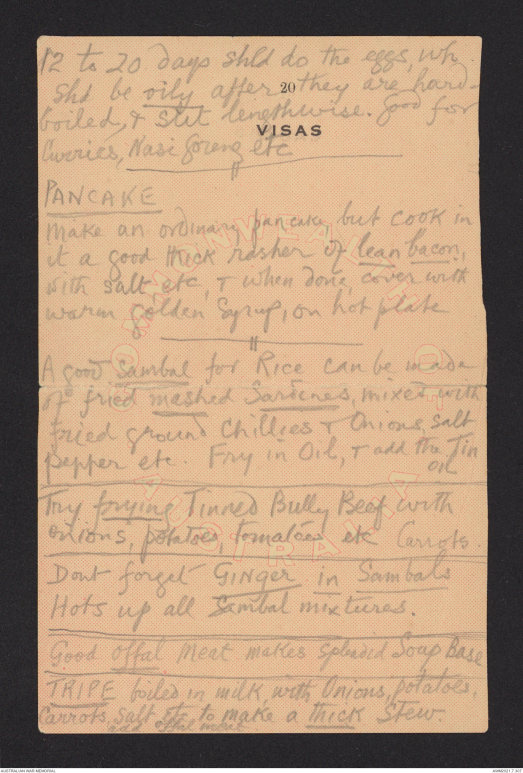 12 to 20 days shld do the eggs, wh
20
shd be oily after they are hard-
boiled, & slit lengthwise. good for
VISAS
Curries, Nasi Goreng etc
PANCAKE
Make an ordinary pancake, but cook in
it a good thick rasher of lean bacon,
with salt etc, & when done, cover with
warm Golden Syrup, on hot plate
A good Sambal for Rice can be made
of fried mashed Sardines, mixed with
fried ground Chillies & Onions, salt
pepper etc. Fry in Oil, & add the Tin
oil
Try frying Tinned Bully Beef with
onions, potatoes, tomatoes etc Carrots.
Dont forget GINGER in Sambals
Hots up all Sambal mixtures.
Good offal meat makes splendid Soup Base
TRIPE boiled in milk with Onions, potatoes,
Carrots, salt etc to make a thick Stew.
add offal
COMMONWEALTH OF
AUSTRALIA
AUSTRALIAN WAR MEMORIAL